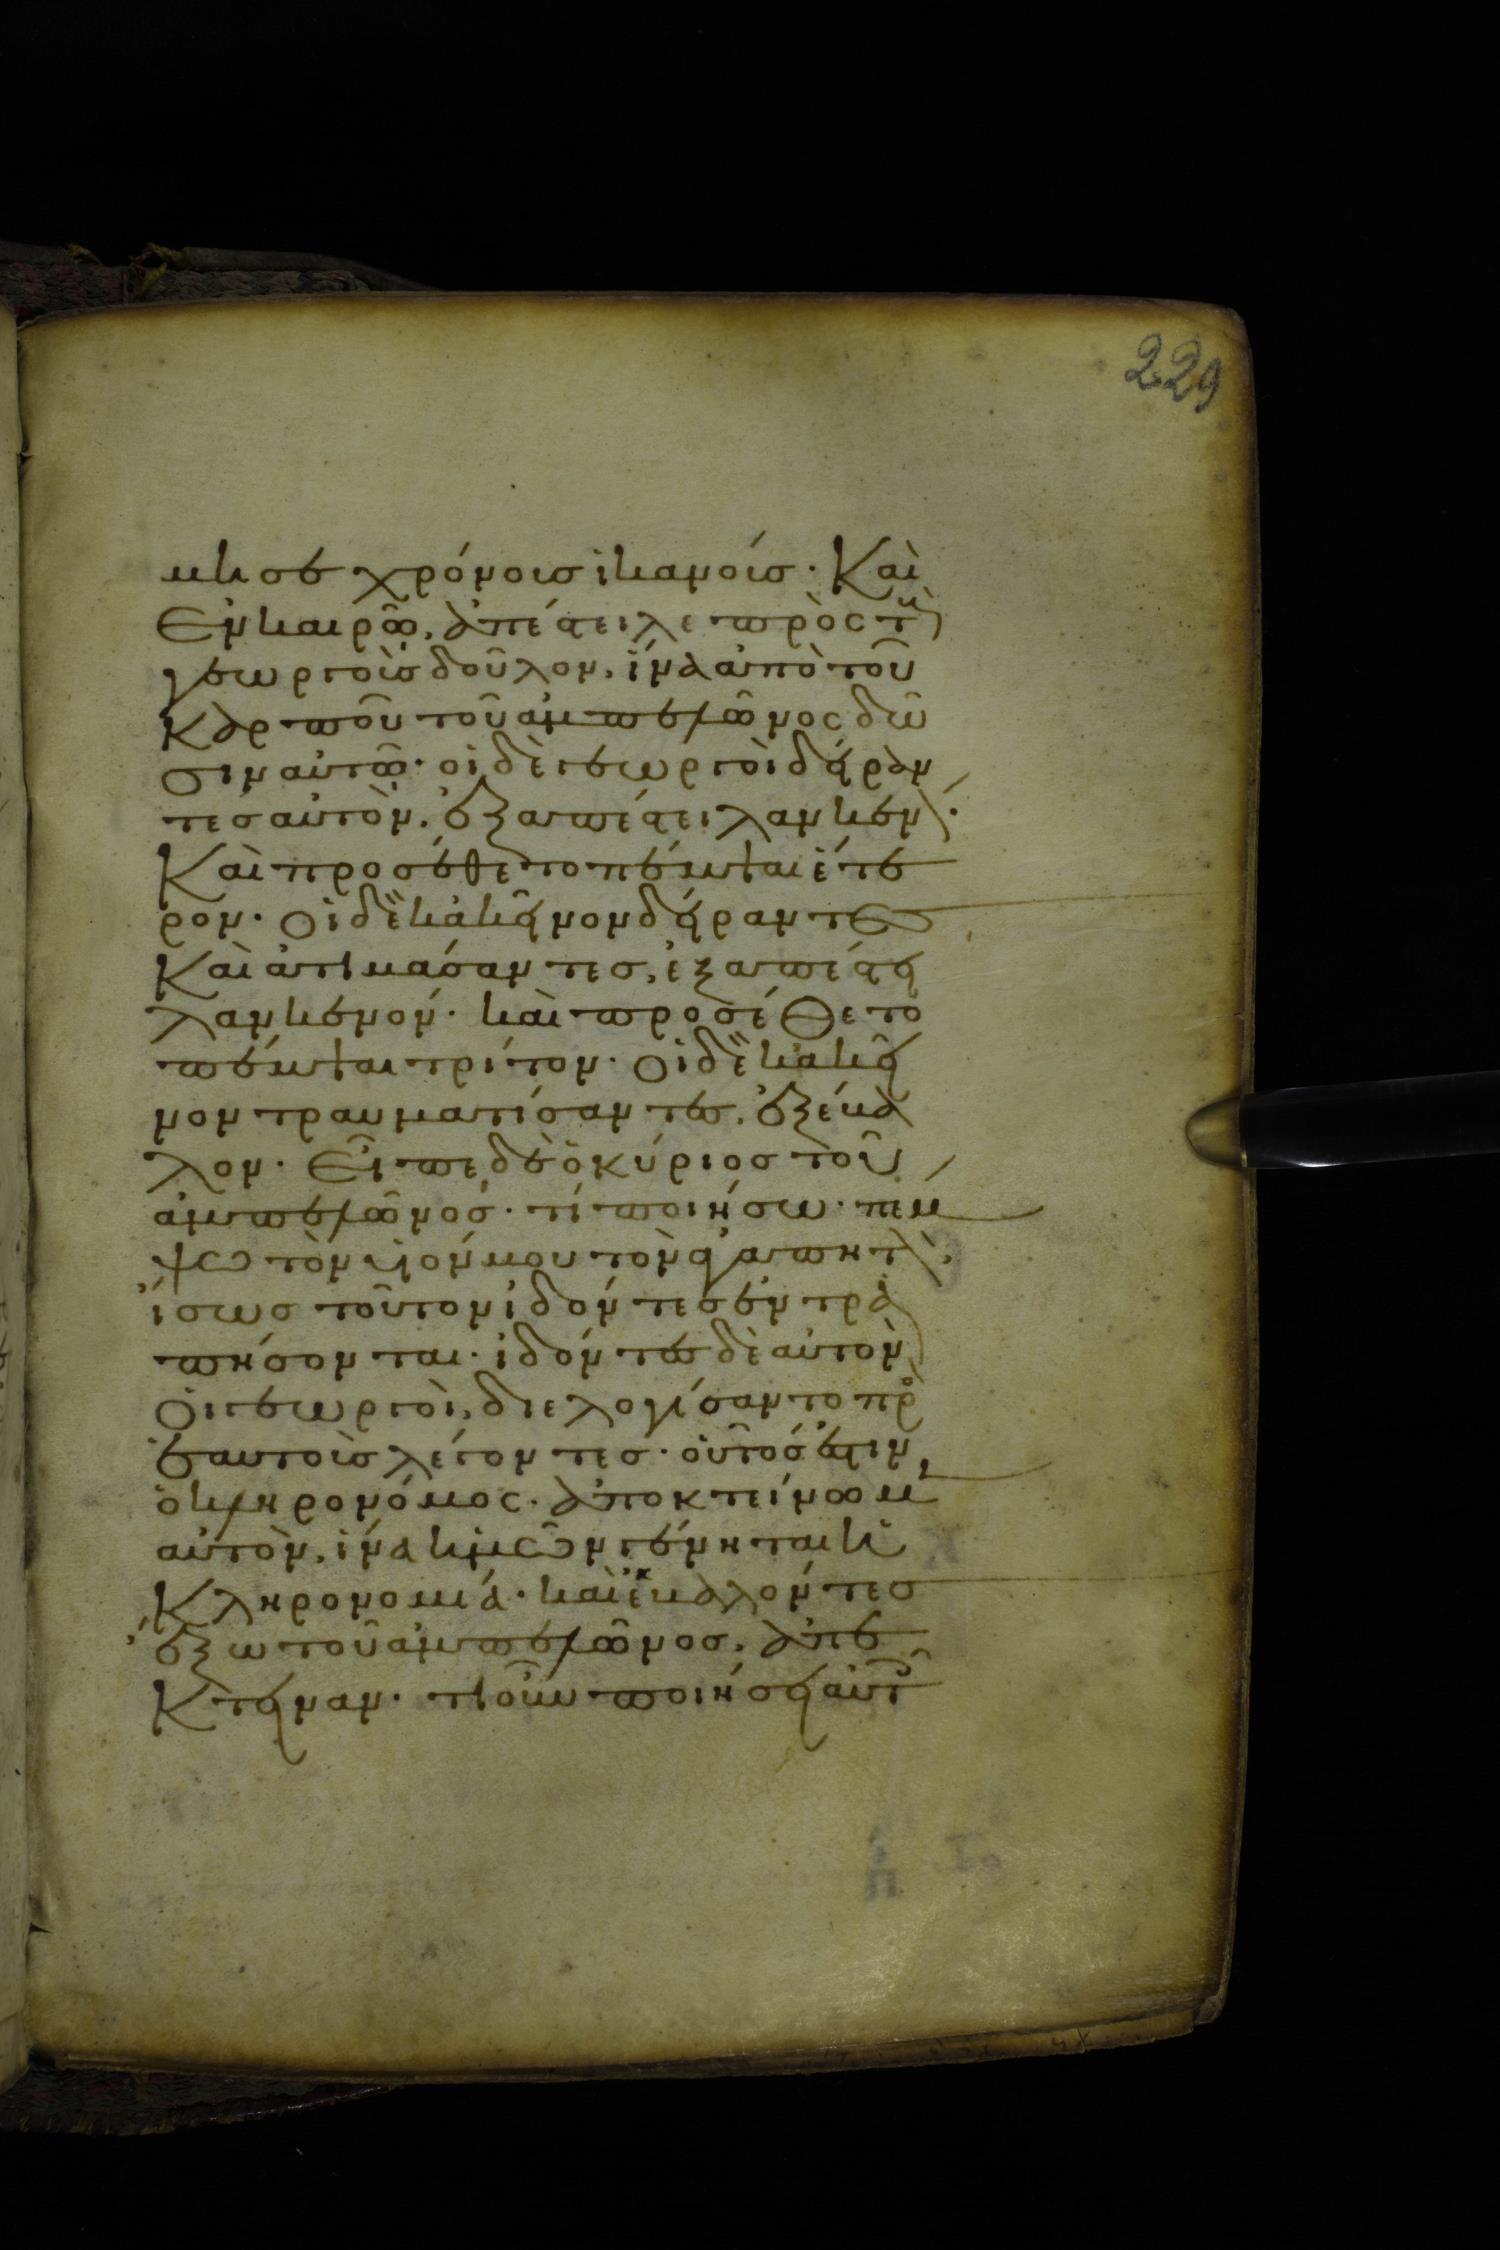 229
μησε χρόνους ἱκανούς. Καὶ
ἐν καιρῷ, ἀπέστειλε πρὸς τοὺς
γεωργοὺς δοῦλον, ἵνα ἀπὸ τοῦ
καρποῦ τοῦ ἀμπελῶνος δῶ
σιν αὐτῷ. οἱ δὲ γεωργοὶ δείραν
τες αὐτὸν, ἐξαπέστειλαν κενόν.
Καὶ προσέθετο πέμψαι ἕτε
ρον. οἱ δὲ κἀκεῖνον δείραντες
Καὶ ἀτιμάσαντες, ἐξαπέστει
λαν κενόν. καὶ προσέθετο
πέμψαι τρίτον. οἱ δὲ κἀκεῖ
νον τραυματίσαντες, ἐξέβα
λον. Εἶπε δὲ ὁ κύριος τοῦ
ἀμπελῶνος. τί ποιήσω. πέμ
ψω τὸν υἱόν μου τὸν ἀγαπητόν.
ἴσως τοῦτον ἰδόντες ἐντρα
πήσονται. ἰδόντες δὲ αὐτὸν
οἱ γεωργοὶ, διελογίσαντο πρὸς
ἑαυτοὺς λέγοντες. οὗτός ἐστιν
ὁ κληρονόμος. ἀποκτείνωμεν
αὐτὸν, ἵνα ἡμῶν γένηται ἡ
Κληρονομία. καὶ ἐκβαλόντες
ἔξω τοῦ ἀμπελῶνος, ἀπέ
Κτειναν. τί οὖν ποιήσει αὐτοῖς